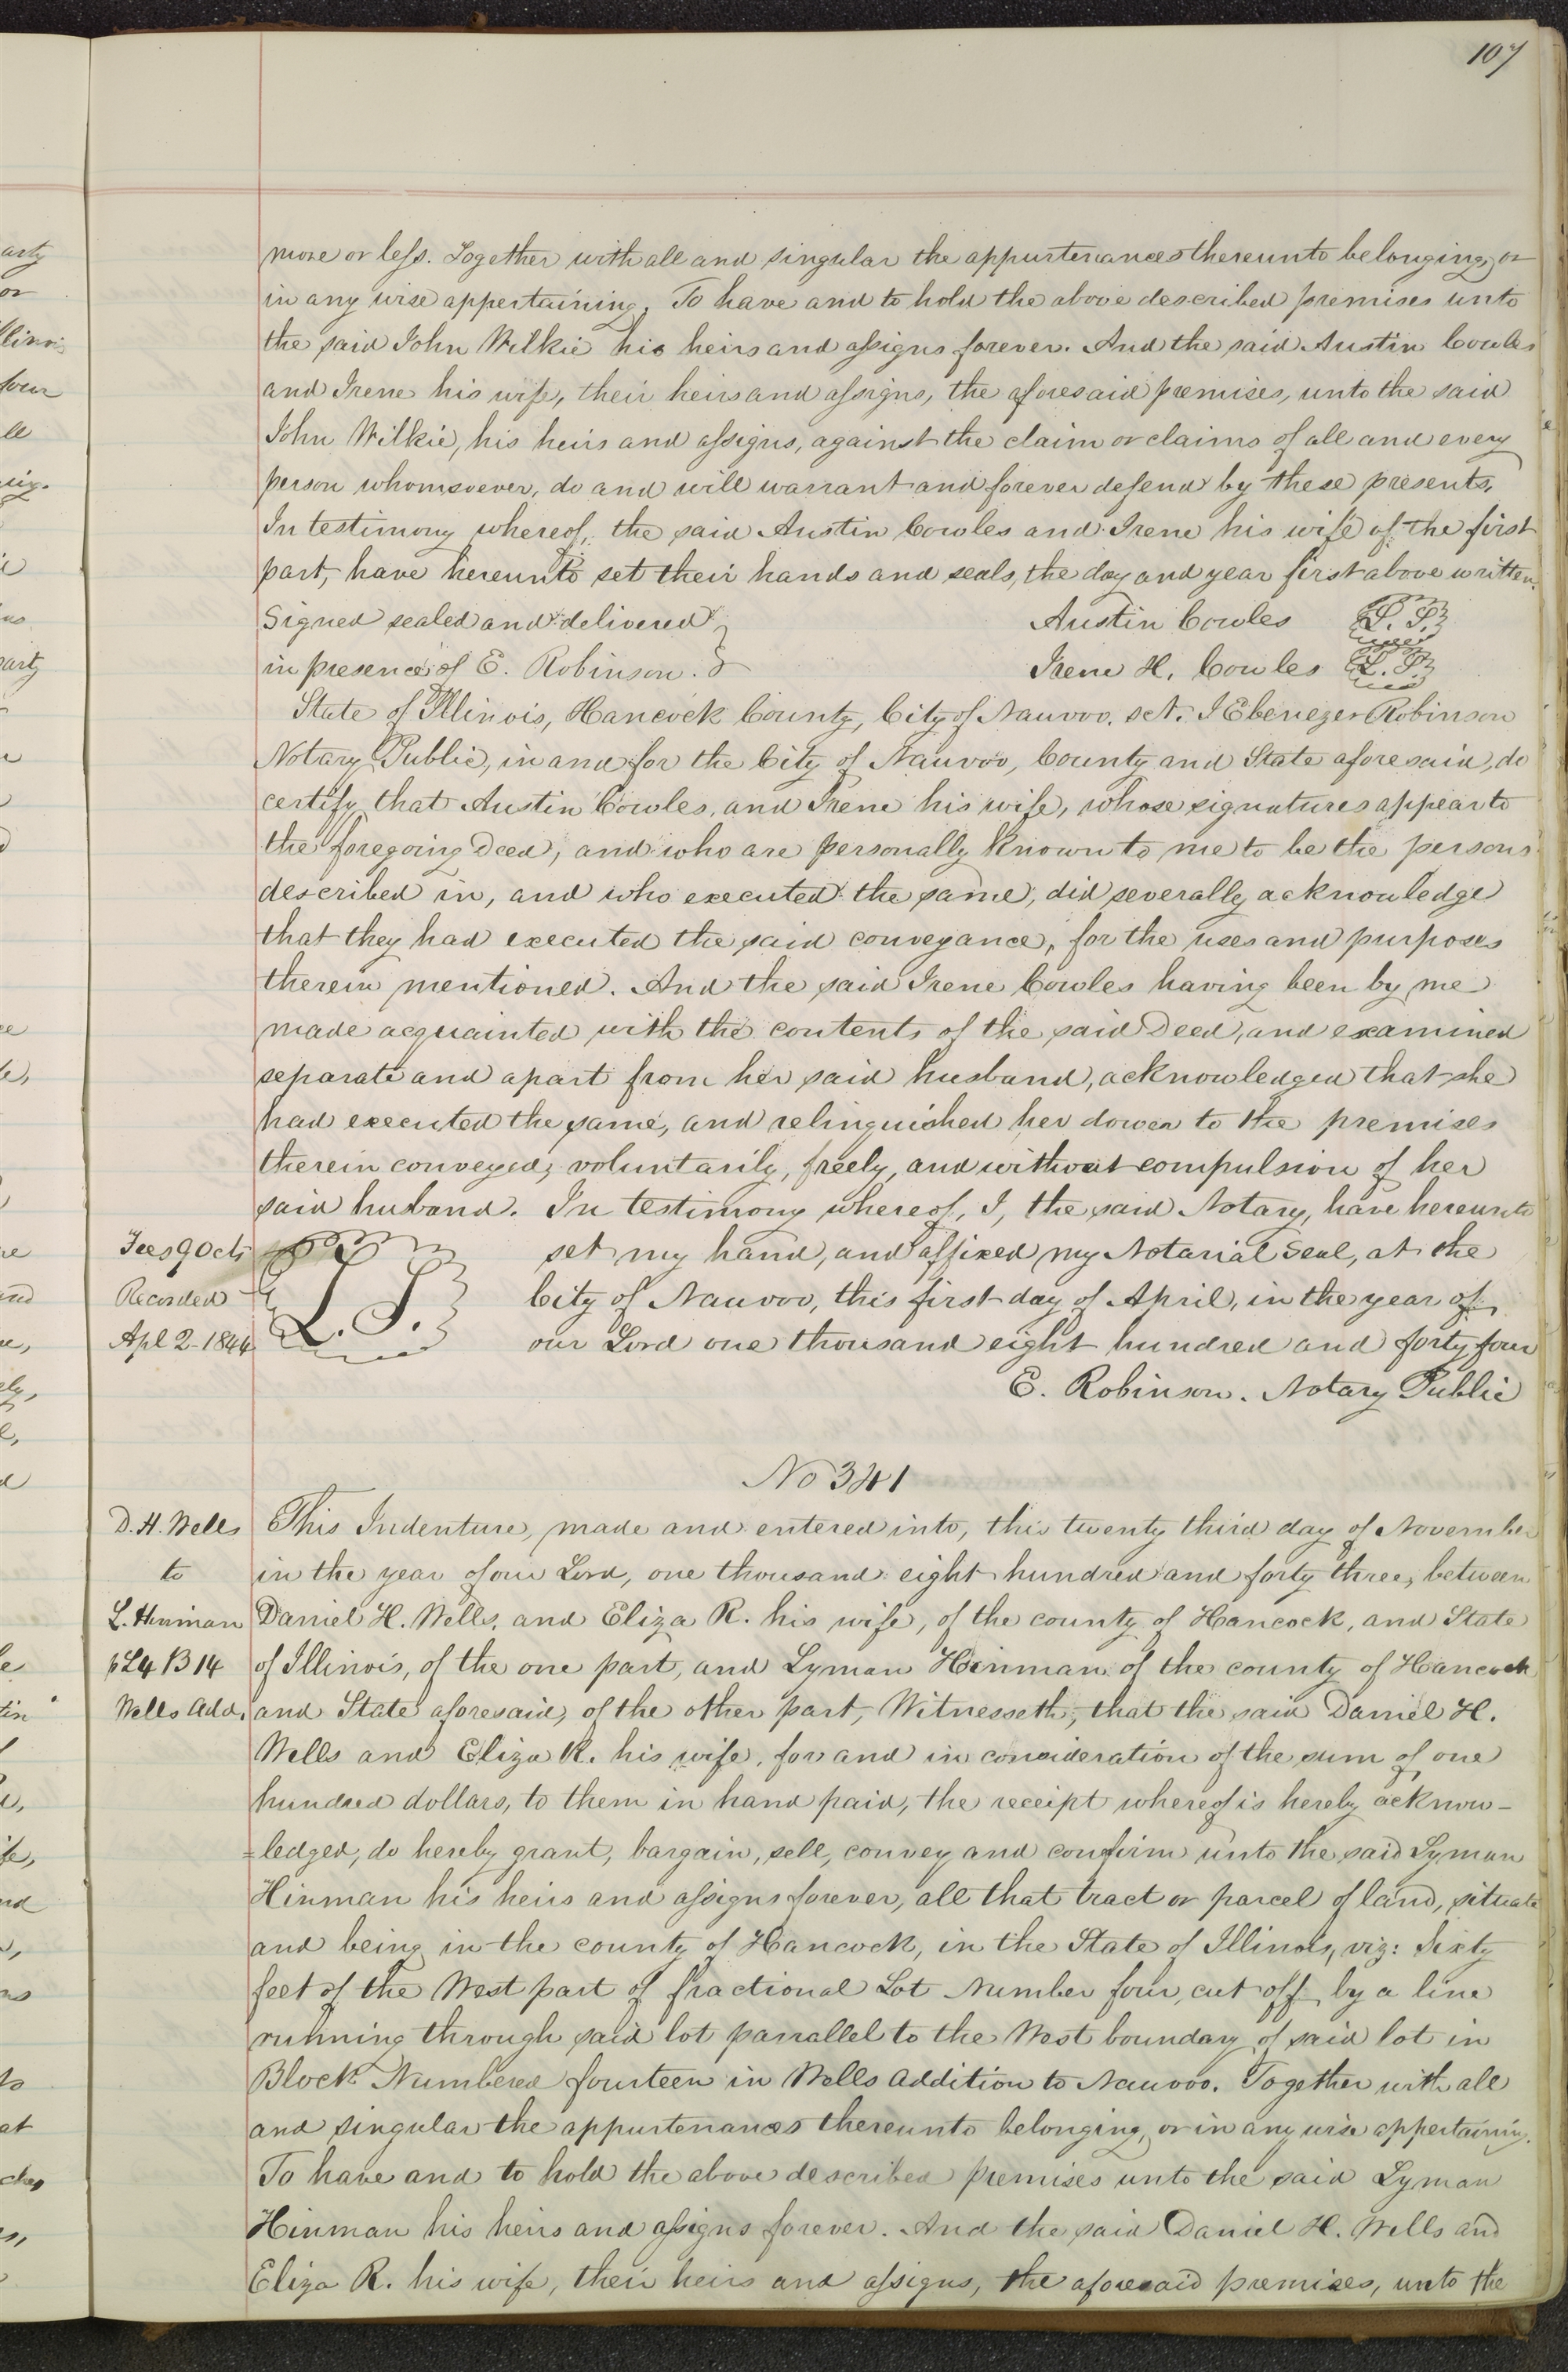 107
more or less. Together with all and singular the appurtenances thereunto belonging, or
in any wise appertaining. To have and to hold the above described premises unto
the said John Wilkie his heirs and assigns forever. And the said Austin Cowles
and Irene his wife, their heirs and assigns, the aforesaid premises, unto the said
John Wilkie, his heirs and assigns, against the claim or claims of all and every
person whomsoever, do and will warrant and forever defend by these presents,
In testimony whereof, the said Austin Cowles and Irene his wife of the first
part, have hereunto set their hands and seals, the day and year first above written.
Signed sealed and delivered } Austin Cowles L. S.
in presence of E. Robinson. } Irene H. Cowles L. S.
State of Illinois, Hancock County, City of Nauvoo. sct. I Ebenezer Robinson
Notary Public, in and for the City of Nauvoo, County and State aforesaid, do
certify, that Austin Cowles, and Irene his wife, whose signatures appear to
the foregoing Deed, and who are personally known to me to be the persons
described in, and who executed the same, did severally acknowledge
that they had executed the said conveyance, for the uses and purposes
therein mentioned. And the said Irene Cowles having been by me
made acquainted with the contents of the said Deed, and examined
separate and apart from her said husband, acknowledged that she
had executed the same, and relinquished her dower to the premises
therein conveyed, voluntarily, freely, and without compulsion of her
said husband. In testimony whereof, I, the said Notary, have hereunto
Fees 90cts set my hand, and affixed my Notarial Seal, at the
Recorded L. S. City of Nauvoo, this first day of April, in the year of
Apl 2-1844 our Lord one thousand eight hundred and forty four
E. Robinson. Notary Public
No 341
D. H. Wells This Indenture, made and entered into, this twenty third day of November
to in the year of our Lord, one thousand eight hundred and forty three, between
L. Hinman Daniel H. Wells, and Eliza R. his wife, of the county of Hancock, and State
p L4 B 14 of Illinois, of the one part, and Lyman Hinman of the county of Hancock
Wells Add. and State aforesaid, of the other part, Witnesseth, that the said Daniel H.
Wells and Eliza R. his wife, for and in consideration of the sum of one
hundred dollars, to them in hand paid, the receipt whereof is hereby acknow-
=ledged, do hereby grant, bargain, sell, convey and confirm unto the said Lyman
Hinman his heirs and assigns forever, all that tract or parcel of land, situate
and being in the county of Hancock, in the State of Illinois, viz: Sixty
feet of the West part of fractional Lot Number four, cut off by a line
running through said lot parrallel to the West boundary of said lot in
Block Numbered fourteen in Wells Addition to Nauvoo. Together with all
and singular the appurtenances thereunto belonging, or in any wise appertaining.
To have and to hold the above described premises unto the said Lyman
Hinman his heirs and assigns forever. And the said Daniel H. Wells and
Eliza R. his wife, their heirs and assigns, the aforesaid premises, unto the